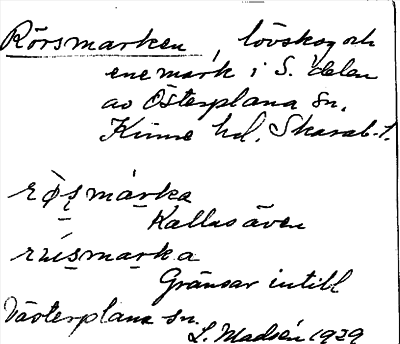 Rörsmarken, lövskog och
enemark i S. delen
av Österplana sn,
Kinne hd, Skarab. l.
røs marka
Kallas även
Gränsar intill
Västerplana sn.
L. Madsén 1929